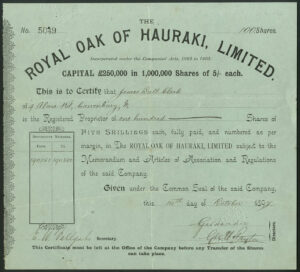 THE
No. 5049
100 Shares.
ROYAL OAK OF HAURAKI, LIMITED.
Incorporated under the Companies Acts, 1862 to 1893.
CAPITAL £250,000 in 1,000,000 Shares of 5/- each.
This is to Certify that James Dall Clark
of
is the Registered Proprietor of one hundred Shares of
FIVE SHILLINGS each, fully paid, and numbered as
per margin, in The ROYAL OAK OF HAURAKI, LIMITED subject to the
Memorandum and Articles of Association and Regulations
of the said Company.
Given under the Common Seal of the said Company,
this day of October 189
Secretary.
This Certificate must be left at the Office of the Company before any Transfer of the Shares
can take place.